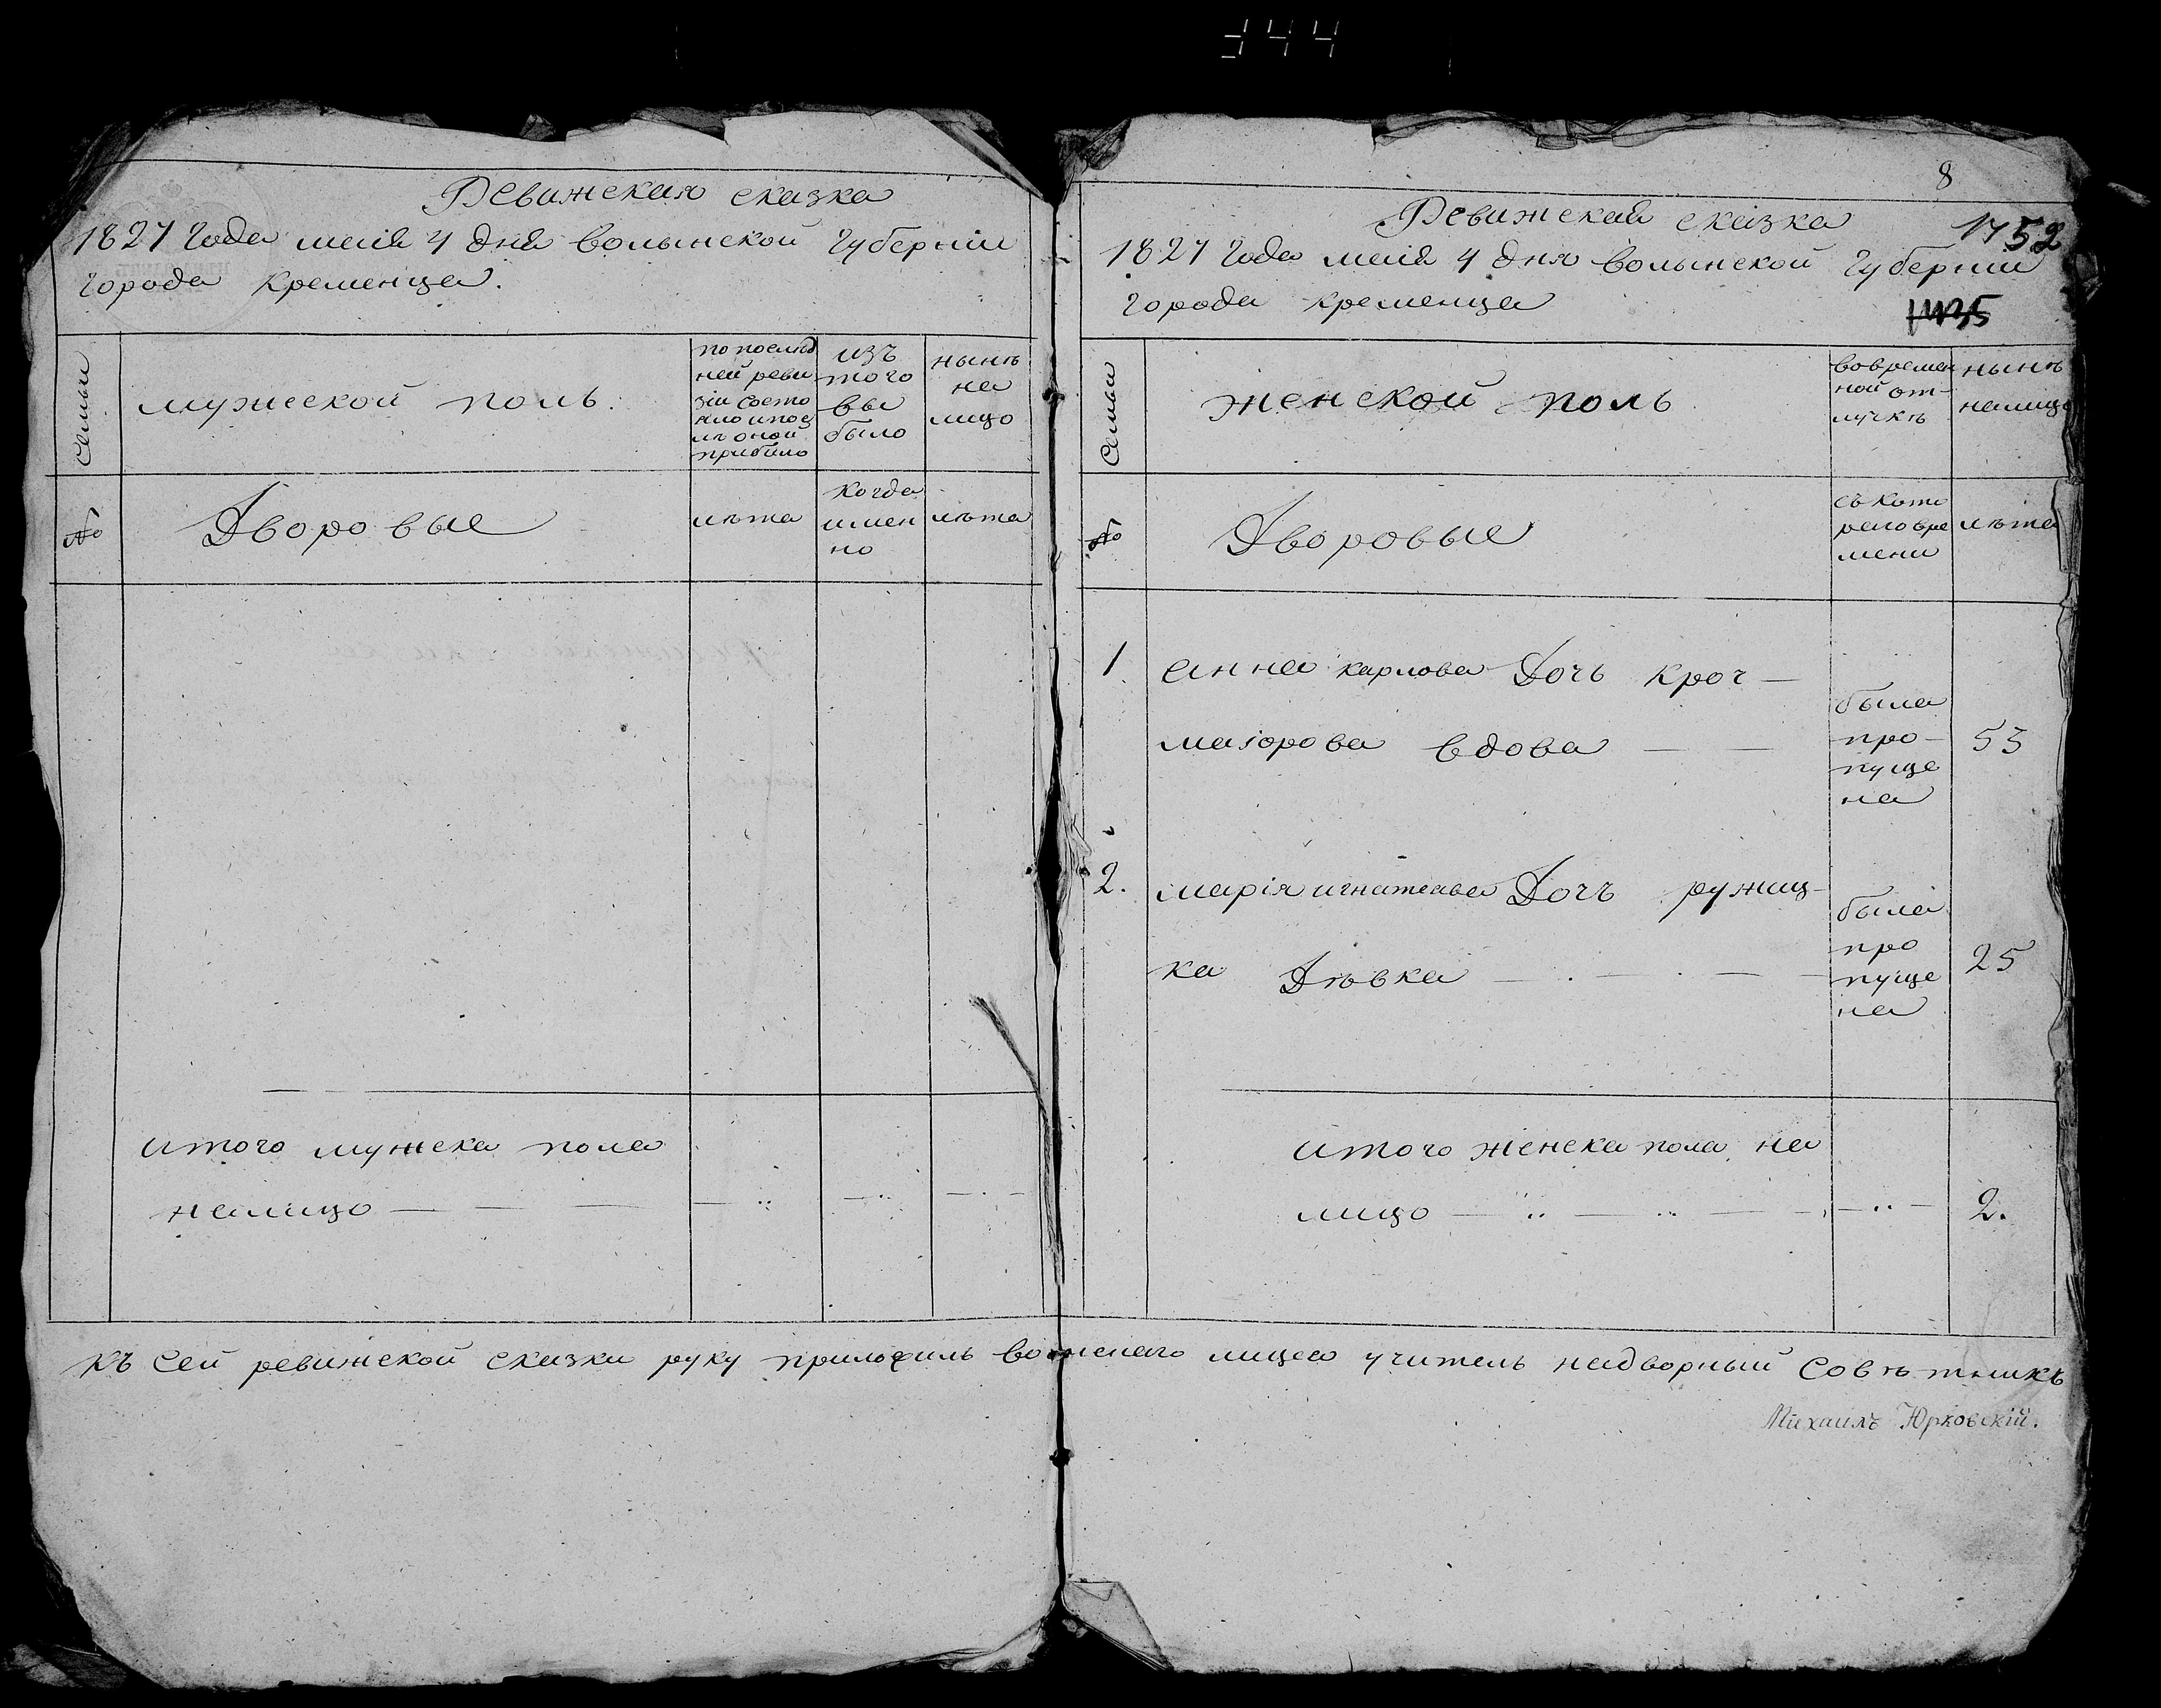 Ревижская сказка
1827 Года маія 4 дня волынской Губерніи
города Кременца.
Семьи
мужеской поль.
по послѣд
ней реви
зіи состо
изъ
того
вы
было
нынѣ
на
лицо
прибыло
№
Дворовые
лѣта
когда
имен
но
лѣта
итого мужска пола
налицо
8
Ревижская сказка
1752
1827 Года маія 4 дня волынской Губерніи
города кременца
Семьи
женской поль
вовремен
ной от-
лучкѣ
нынѣ
налицо
№
Дворовые
съ кото
раго вре
мени
лѣта
1. анна карлова Дочь Кроч-
маiорова вдова
была
про-
пуще
на
53
2. марія игнатева Дочъ ружиц-
ка Дѣвка
была
про
пуще
на
25
итого женска пола на
лицо 2.
Къ сей ревижской сказки руку приложилъ волынскаго лицея учитель надворный Совѣтникъ
Михаилъ Юрковскій.